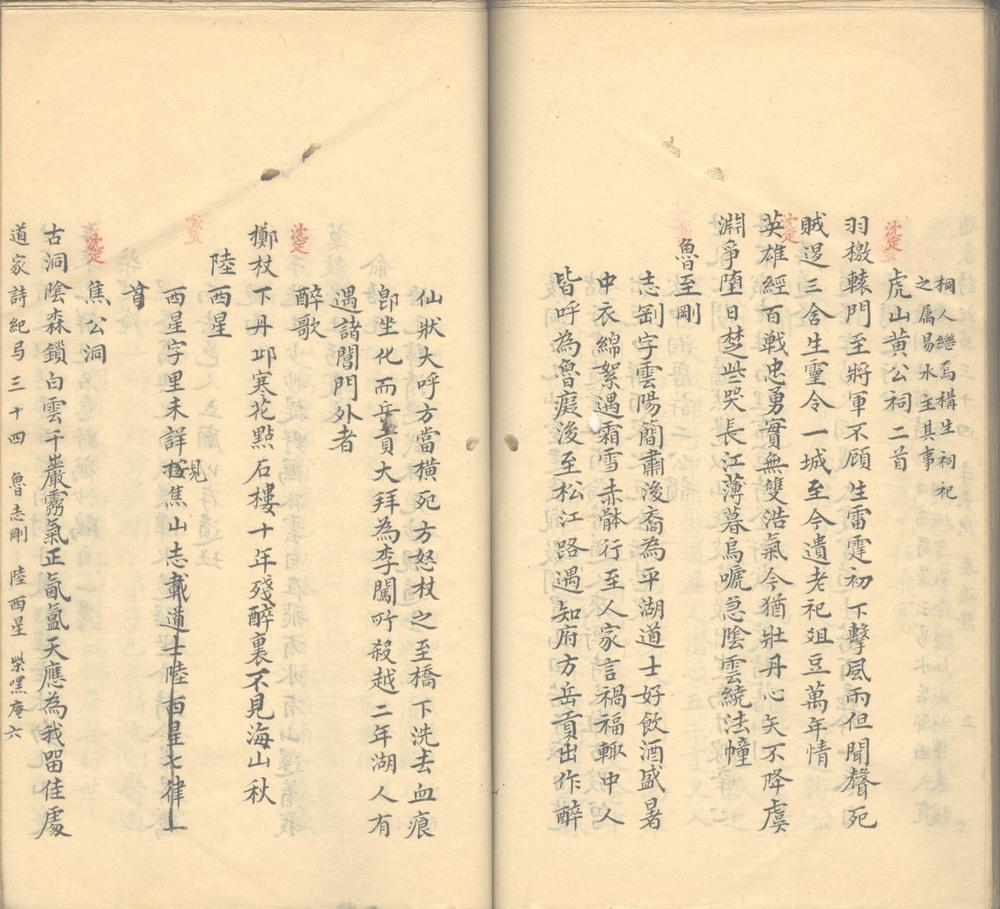 祠人繼為構生祠祀
之属易水主其事
沈定
虎山黃公祠二首
羽檄轅門至將軍不顧生雷霆初下擊風雨但聞聲死
賊逷三舍生靈令一城至今遺老祀俎豆萬年情
沈定
英雄經百戰忠勇實無雙浩氣今猶壯丹心矢不降虞
淵爭墮日楚些哭長江薄暮烏嗁急陰雲繞法幢
魯至剛
志剛字雲陽簡肅後裔為平湖道士好飲酒盛暑
中衣綿絮遇霜雪赤骵行至人家言禍福輒中人
皆呼為魯瘋後至松江路遇知府方岳貢出作醉
仙狀大呼方當橫死方怒杖之至橋下洗去血痕
即坐化而岳貢大拜為李闖所殺越二年湖人有
遇諸閶門外者
沈定
醉歌
擲杖下丹邱寒花點石樓十年殘醉裏不見海山秋
陸西星
西星字里未詳見焦山志載道士陸西星七律一
首
沈定
焦公洞
古洞陰森鎖白雲千巖霧氣正氤氳天應為我留佳處
道家詩紀弓三十四 魯志剛 陸西星 柴嘿庵六